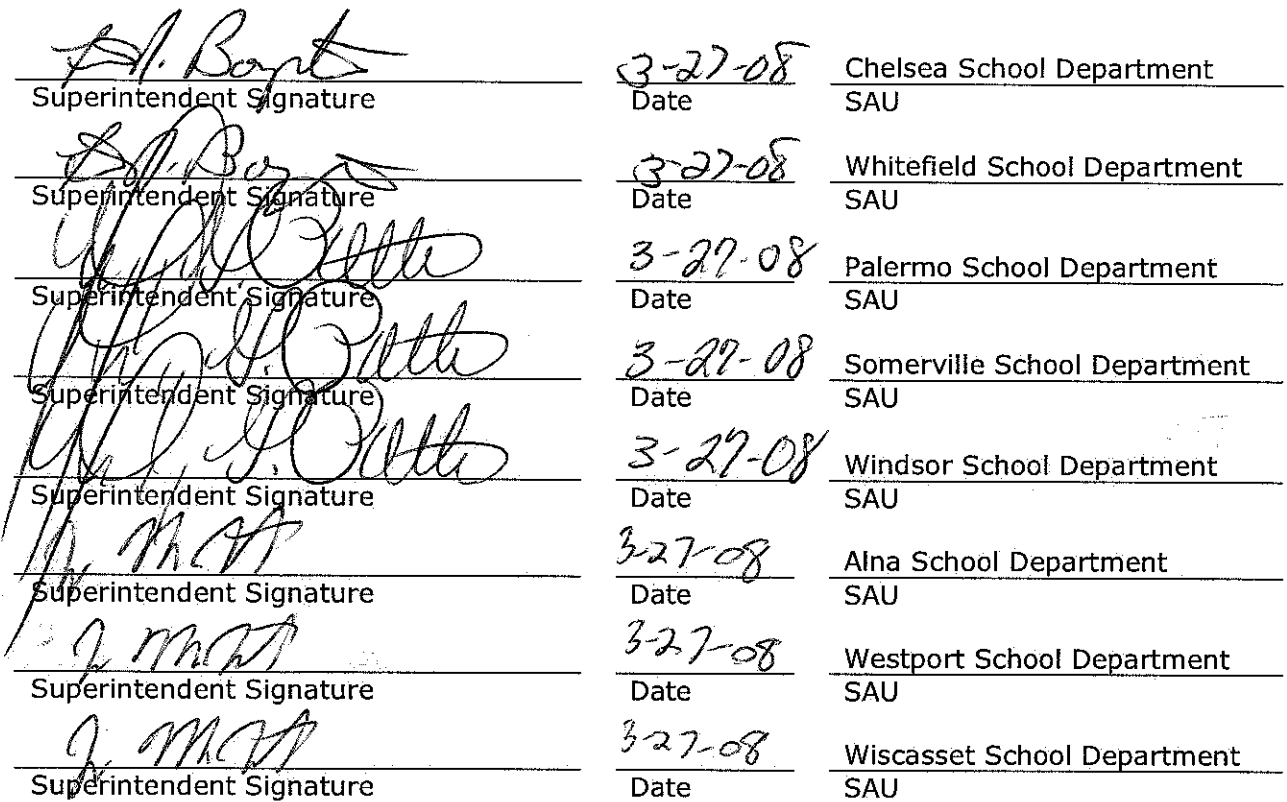 3-27-08 Chelsea School Department
Superintendent Signature Date SAU
3-27-08 Whitefield School Department
Superintendent Signature Date SAU
3-27-08 Palermo School Department
Superintendent Signature Date SAU
3-27-08 Somerville School Department
Superintendent Signature Date SAU
3-27-08 Windsor School Department
Superintendent Signature Date SAU
3-27-08 Alna School Department
Superintendent Signature Date SAU
3-27-08 Westport School Department
Superintendent Signature Date SAU
3-27-08 Wiscasset School Department
Superintendent Signature Date SAU